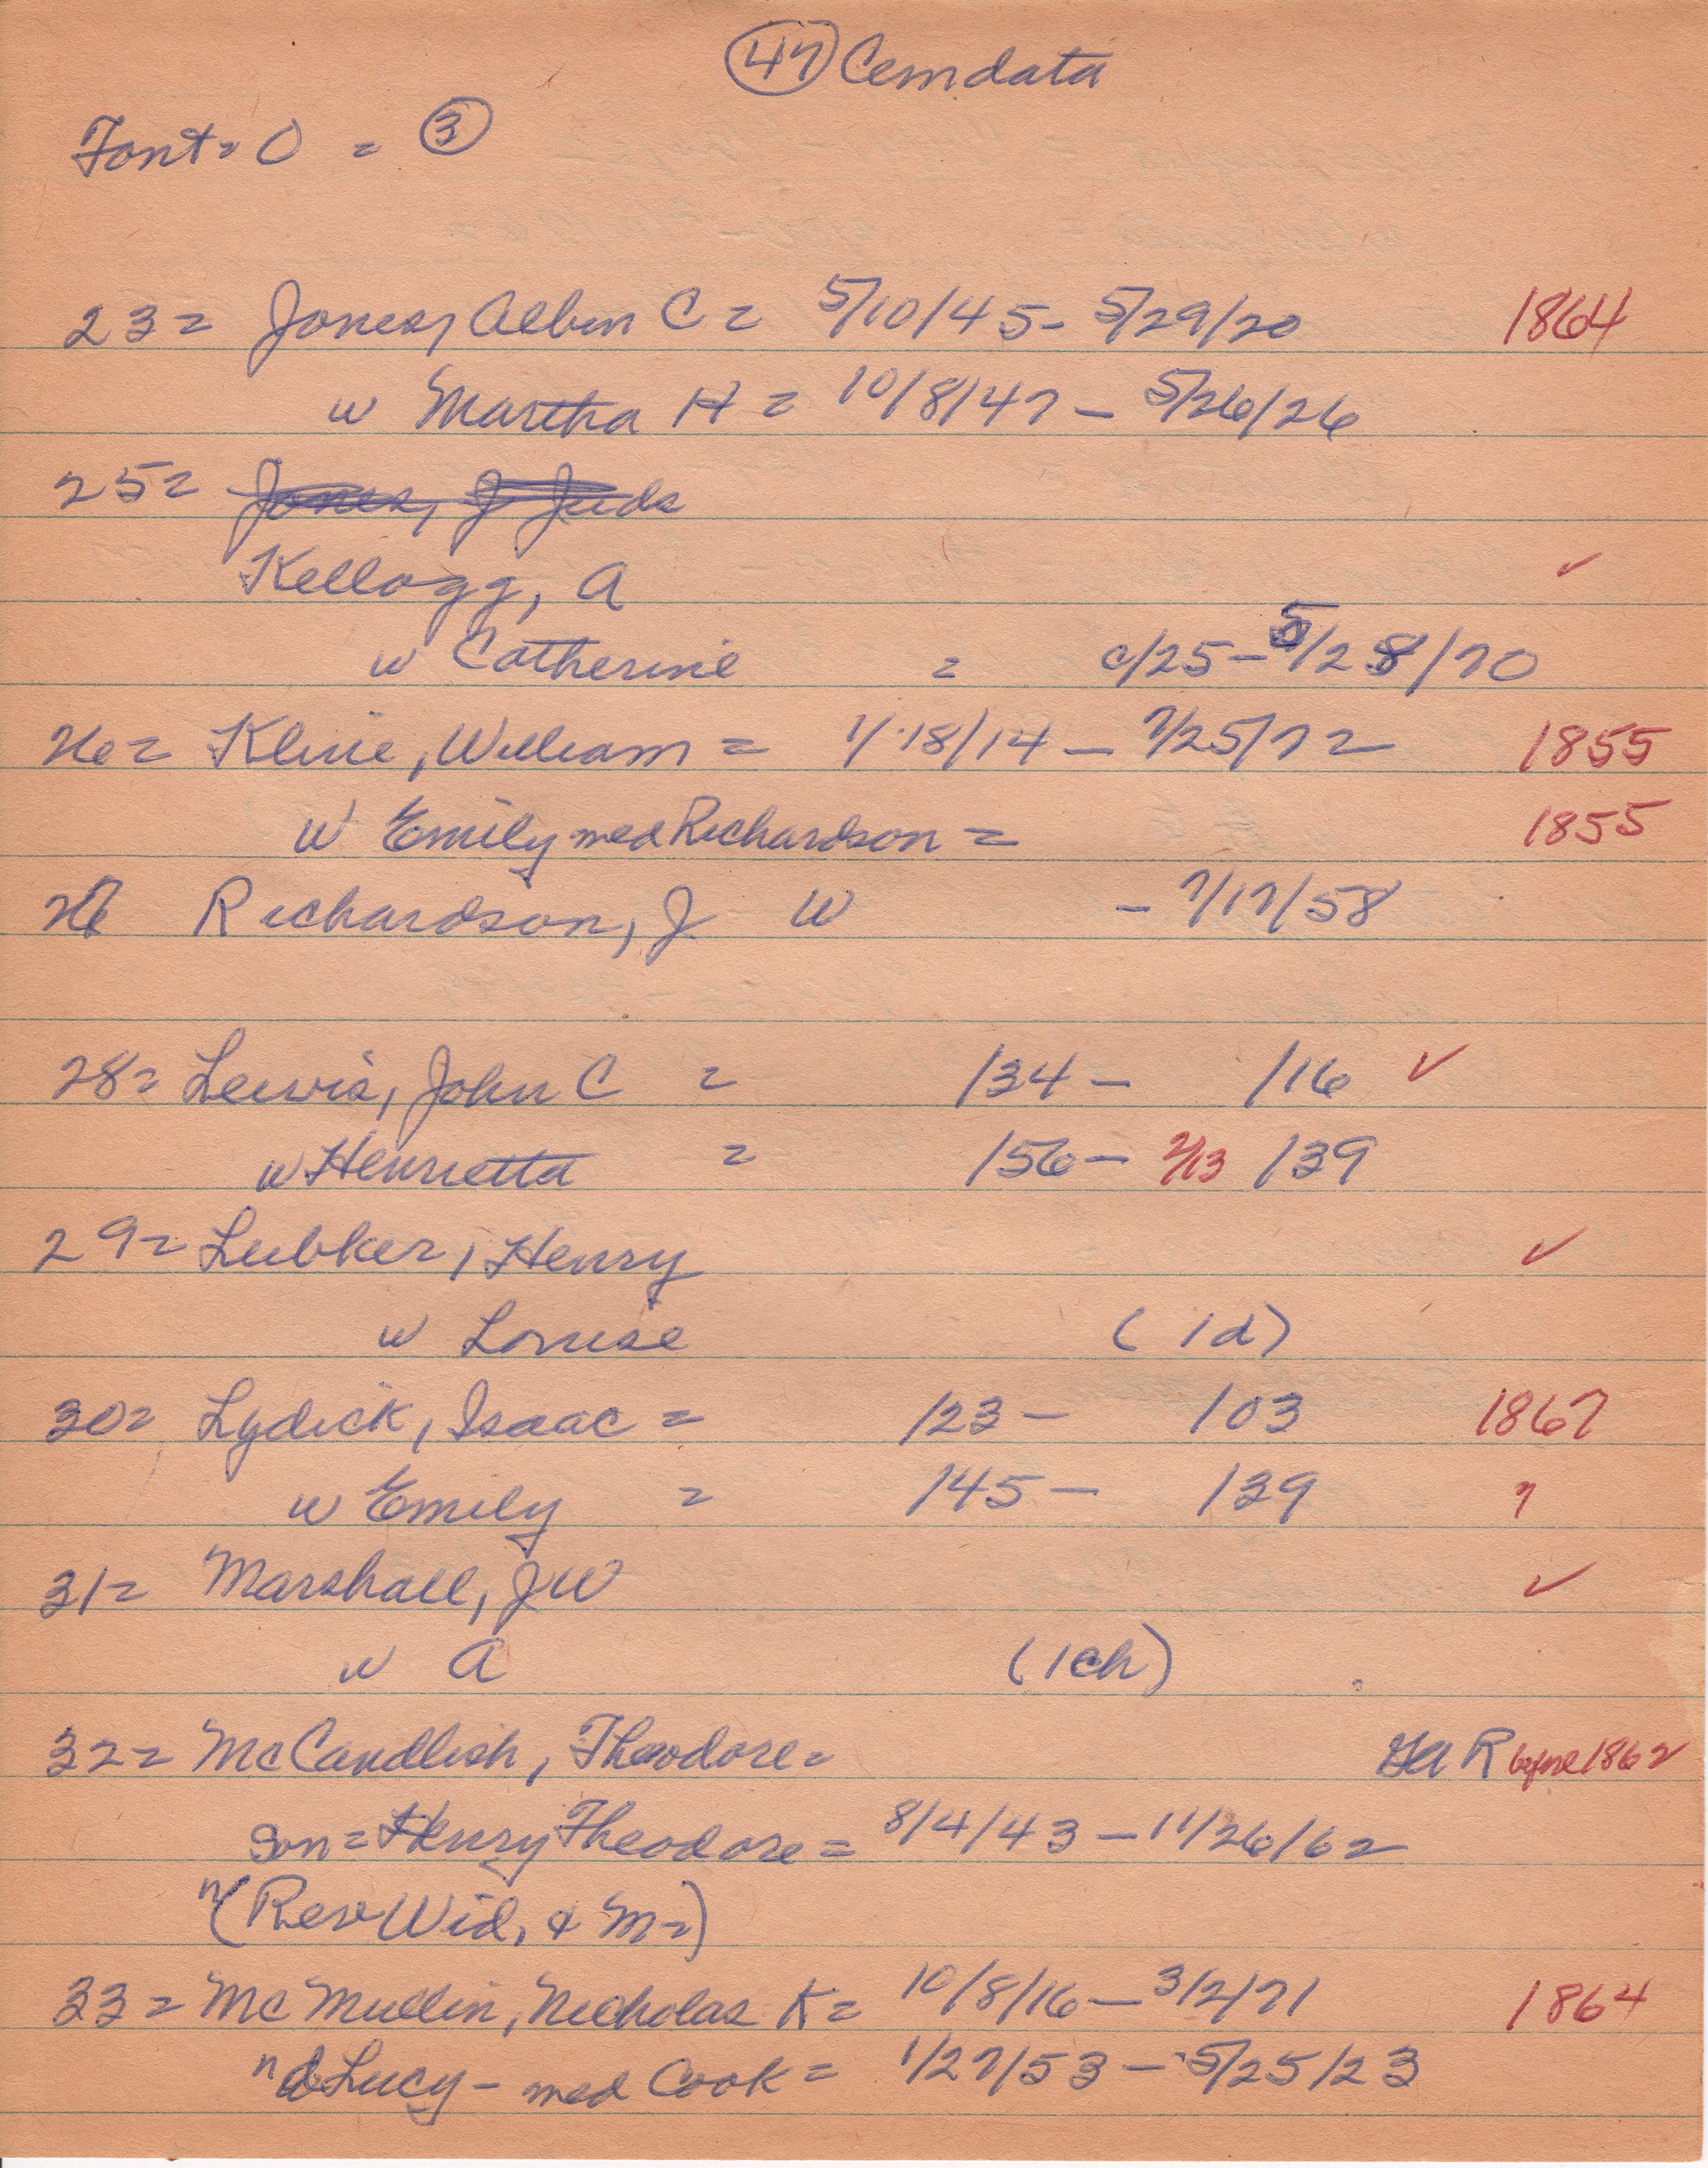 (47) Cemdata
Font = O = (3)
23 = Jones, Albin C = 5/10/45 - 5/29/20 1864
w Martha H = 10/8/47 - 5/26/26
25 = Jones, J Juds
Kellogg, A ✓
w Catherine = c/25 - 5/28/70
26 = Kline, William = 1/18/14 - 7/25/72 1855
w Emily med Richardson = 1855
Richardson, J W - 7/17/58
28 = Lewis, John C = /34 - /16 ✓
w Henrietta = /56 - 2/13 /39
29 = Lubker, Henry ✓
w Louise ( 1d)
30 = Lydick, Isaac = /23 - /03 1867
w Emily = /45 - /39 ?
31 = Marshall, JW ✓
w A (1ch)
32 = McCandlish, Theodore = R before 1862
son = Henry Theodore = 8/4/43 - 11/26/62
n (Rev Wid, & M=)
33 = McMullin, Nicholas K = 10/8/16 - 3/2/71 1864
n d Lucy - med Cook = 1/27/53 - 5/25/23